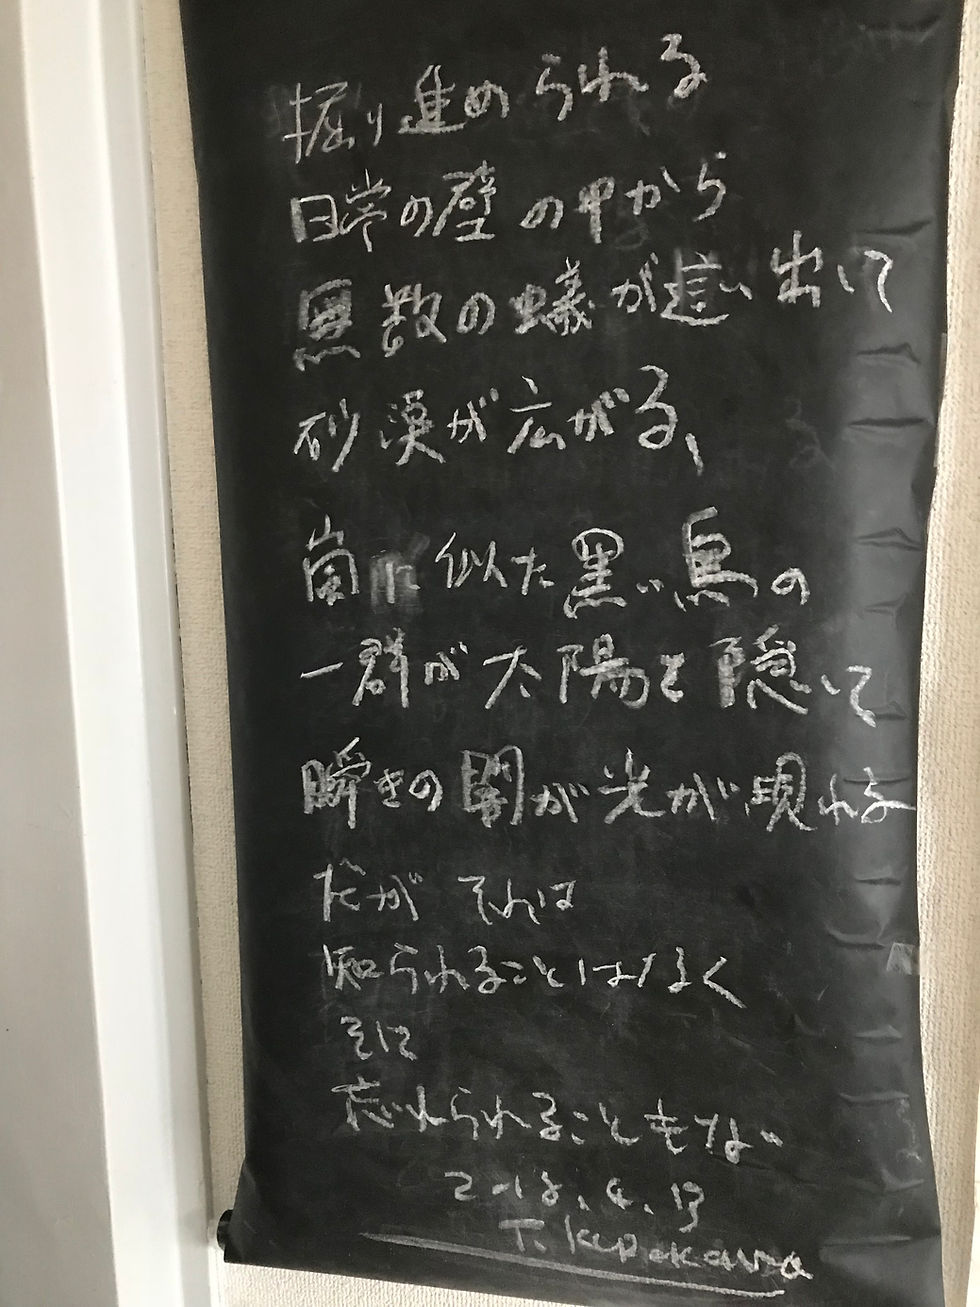 掘り進められる
日常の壁の中から
無数の蟻が這い出して
砂漠が広がる、
嵐に似た黒い鳥の
一群が太陽を隠して
瞬きの闇が光が現れる
だが それは
知られることはなく
そに
忘れられることもない
2018.4.13
T.